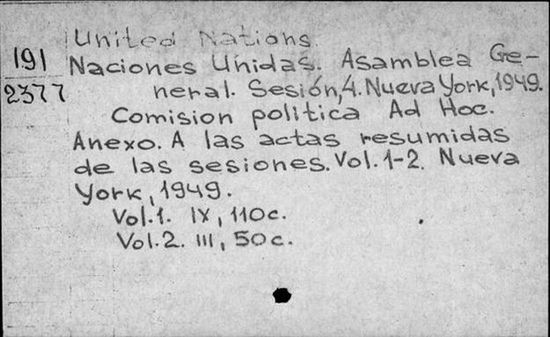 United Nations.
191
2377
Naciones Unidas. Asamblea Ge-
neral. Sesión,4. Nueva York,1949.
Comision politica Ad Hoc.
Anexo. A las actas resumidas
de las sesiones. Vol. 1-2. Nueva
York, 1949.
Vol.1. IX, 110c.
Vol.2. III, 50c.